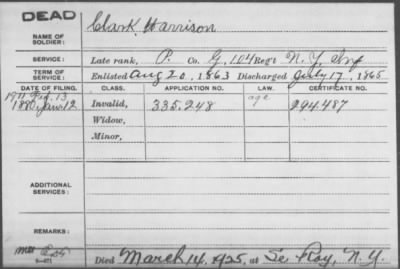 DEAD
NAME OF SOLDIER: Clark, Harrison
SERVICE: Late rank, P. Co. G, 104 Reg't N.Y. Inf
TERM OF SERVICE: Enlisted Aug 20, 1863 Discharged July 17, 1865
DATE OF FILING. CLASS. APPLICATION NO. LAW. CERTIFICATE NO.
1911 Feb. 13 age
1880, Jan 12 Invalid, 335.248 294.487
Widow,
Minor,
ADDITIONAL SERVICES:
REMARKS:
Died March 14, 1925, at Le Roy, N.Y.